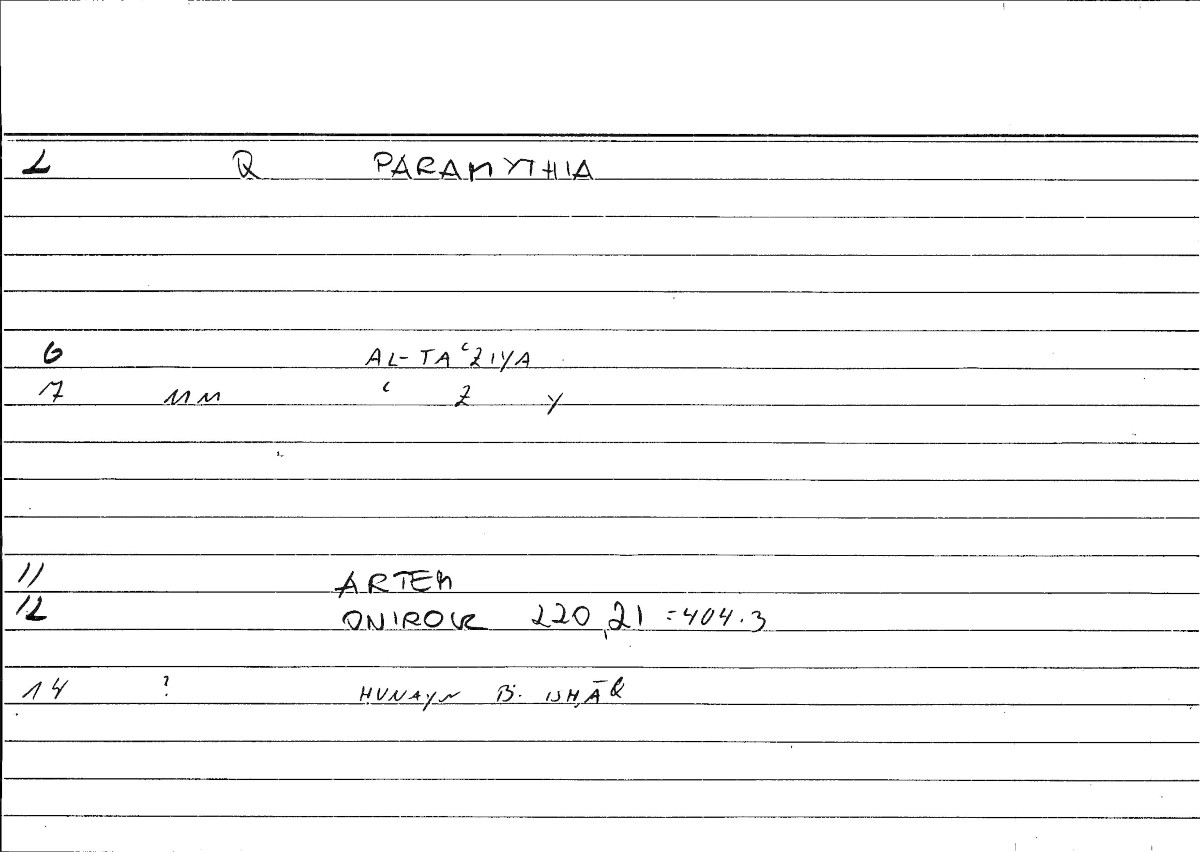 2 Q PARAMYTHIA
6 AL-TAʿZIYA
7 MM ʿ Z Y
11 ARTEM
12 ONIROCR 220,21 =404.3
14 ? ḤUNAYN B. ISḤĀQ